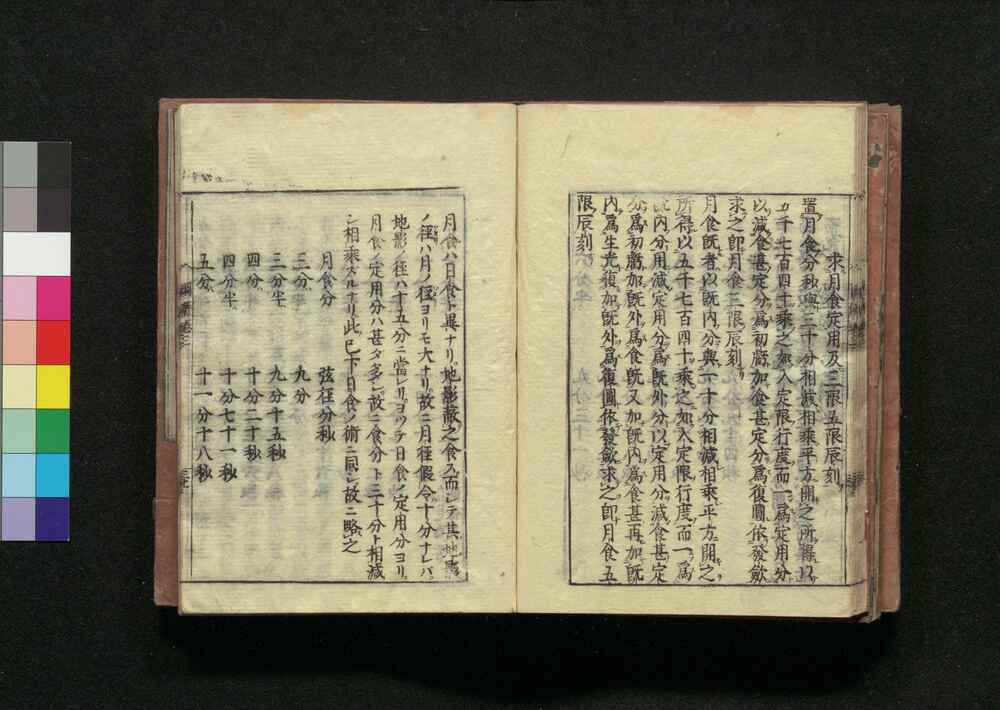 求月食定用及三限五限辰刻
置月食分秒與三十分相減相乘平方開之所得以
五千七百四十乘之如入定限行度而一爲定用分
以減食甚定分爲初虧加食甚定分爲復圓依發斂
求之卽月食三限辰刻
月食既者以既内分與一十分相減相乘平方開之
所得以五千七百四十乘之如入定限行度而一爲
既内分用減定用分爲既外分以定用分減食甚定
分爲初虧加既外爲食既又加既内爲食甚再加既
内爲生光復加既外爲復圓依發斂求之卽月食五
限辰刻
月食ハ日食ト異ナリ地影蔽之食ス而シテ其地影
ノ徑ハ月ノ徑ヨリモ大ナリ故ニ月徑假令十分ナレバ
地影ノ徑ハ十五分ニ當レリヨツテ日食ノ定用分ヨリ
月食ノ定用分ハ甚タ多シ故ニ食分ト三十分ト相減
シ相乘スルナリ此已下日食ノ術ニ同シ故ニ略之
月食分 弦徑分秒
三分 九分
三分半 九分十五秒
四分 十分二十秒
四分半 十分七十一秒
五分 十一分十八秒